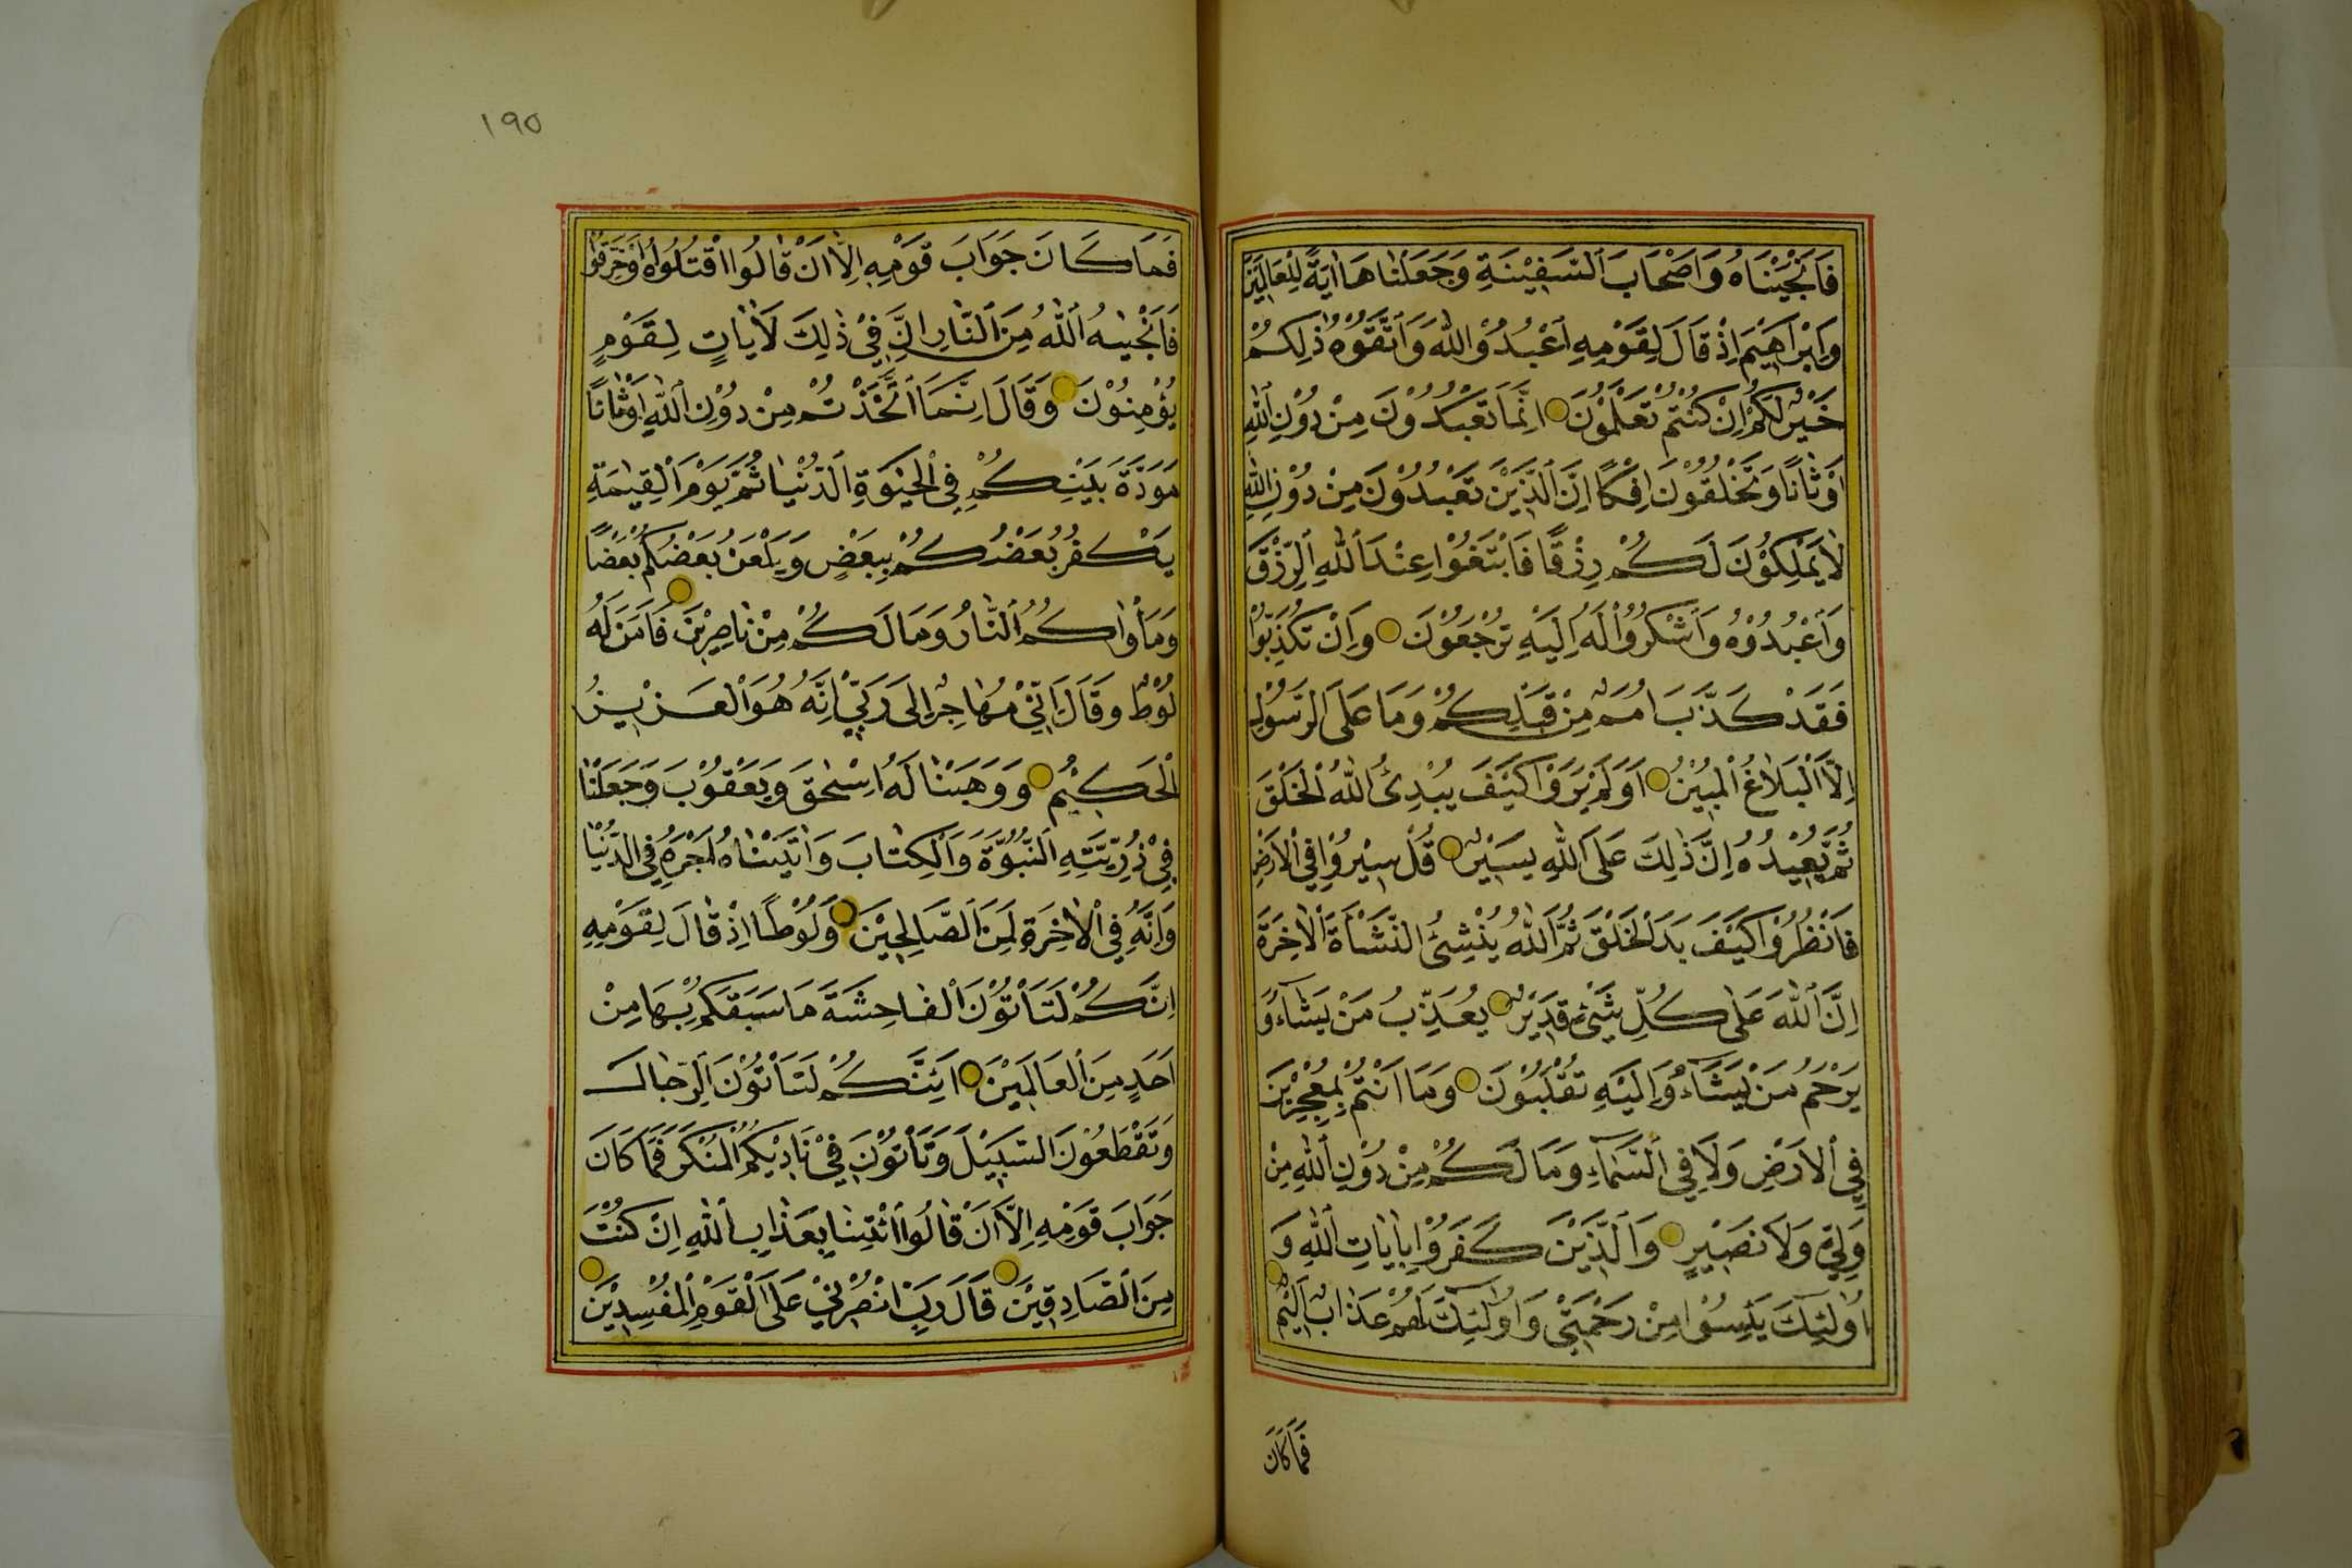 فَاَنْجَيْنَاهُ وَاَصْحَابَ السَّفِيْنَةِ وَجَعَلْنَاهَا اٰيَةً لِلْعَالَمِيْنَ
وَاِبْرَاهِيْمَ اِذْ قَالَ لِقَوْمِهِ اعْبُدُوْا اللّٰهَ وَاتَّقُوْهُ ذٰلِكُمْ
خَيْرٌ لَكُمْ اِنْ كُنْتُمْ تَعْلَمُوْنَ اِنَّمَا تَعْبُدُوْنَ مِنْ دُوْنِ اللّٰهِ
اَوْثَانًا وَتَخْلُقُوْنَ اِفْكًا اِنَّ الَّذِيْنَ تَعْبُدُوْنَ مِنْ دُوْنِ اللّٰهِ
لَا يَمْلِكُوْنَ لَكُمْ رِزْقًا فَابْتَغُوْا عِنْدَ اللّٰهِ الرِّزْقَ
وَاعْبُدُوْهُ وَاشْكُرُوْا لَهُ اِلَيْهِ تُرْجَعُوْنَ وَاِنْ تُكَذِّبُوْا
فَقَدْ كَذَّبَ اُمَمٌ مِنْ قَبْلِكُمْ وَمَا عَلَى الرَّسُوْلِ
اِلَّا الْبَلَاغُ الْمُبِيْنُ اَوَلَمْ يَرَوْا كَيْفَ يُبْدِئُ اللّٰهُ الْخَلْقَ
ثُمَّ يُعِيْدُهُ اِنَّ ذٰلِكَ عَلَى اللّٰهِ يَسِيْرٌ قُلْ سِيْرُوْا فِي الْاَرْضِ
فَانْظُرُوْا كَيْفَ بَدَ الْخَلْقَ ثُمَّ اللّٰهُ يُنْشِئُ النَّشْاَةَ الْاٰخِرَةَ
اِنَّ اللّٰهَ عَلٰى كُلِّ شَيْءٍ قَدِيْرٌ يُعَذِّبُ مَنْ يَشَاءُ وَ
يَرْحَمُ مَنْ يَشَاءُ وَاِلَيْهِ تُقْلَبُوْنَ وَمَا اَنْتُمْ بِمُعْجِزِيْنَ
فِي الْاَرْضِ وَلَا فِي السَّمَاءِ وَمَا لَكُمْ مِنْ دُوْنِ اللّٰهِ مِنْ
وَلِيٍّ وَلَا نَصِيْرٍ وَالَّذِيْنَ كَفَرُوْا بِاٰيَاتِ اللّٰهِ وَ
اُولٰئِكَ يَئِسُوْا مِنْ رَحْمَتِيْ وَاُولٰئِكَ لَهُمْ عَذَابٌ اَلِيْمٌ
فَمَا كَانَ
١٩٥
فَمَا كَانَ جَوَابَ قَوْمِهِ اِلَّا اَنْ قَالُوا اقْتُلُوْهُ اَوْ حَرِّقُوْا
فَاَنْجٰيهُ اللّٰهُ مِنَ النَّارِ اِنَّ فِيْ ذٰلِكَ لَاٰيَاتٍ لِقَوْمٍ
يُؤْمِنُوْنَ وَقَالَ اِنَّمَا اتَّخَذْتُمْ مِنْ دُوْنِ اللّٰهِ اَوْثَانًا
مَوَدَّةَ بَيْنِكُمْ فِي الْحَيٰوةِ الدُّنْيَا ثُمَّ يَوْمَ الْقِيٰمَةِ
يَكْفُرُ بَعْضُكُمْ بِبَعْضٍ وَيَلْعَنُ بَعْضُكُمْ بَعْضًا
وَمَأْوٰاكُمُ النَّارُ وَمَا لَكُمْ مِنْ نَاصِرِيْنَ فَاٰمَنَ لَهُ
لُوْطٌ وَقَالَ اِنِّيْ مُهَاجِرٌ اِلٰى رَبِّيْ اِنَّهُ هُوَ الْعَزِيْزُ
الْحَكِيْمُ وَوَهَبْنَا لَهُ اِسْحٰقَ وَيَعْقُوْبَ وَجَعَلْنَا
فِيْ ذُرِّيَّتِهِ النُّبُوَّةَ وَالْكِتَابَ وَاٰتَيْنَاهُ اَجْرَهُ فِي الدُّنْيَا
وَاِنَّهُ فِي الْاٰخِرَةِ لَمِنَ الصَّالِحِيْنَ وَلُوْطًا اِذْ قَالَ لِقَوْمِهِ
اِنَّكُمْ لَتَأْتُوْنَ الْفَاحِشَةَ مَا سَبَقَكُمْ بِهَا مِنْ
اَحَدٍ مِنَ الْعَالَمِيْنَ اَئِنَّكُمْ لَتَأْتُوْنَ الرِّجَالَ
وَتَقْطَعُوْنَ السَّبِيْلَ وَتَأْتُوْنَ فِيْ نَادِيْكُمُ الْمُنْكَرَ فَمَا كَانَ
جَوَابَ قَوْمِهِ اِلَّا اَنْ قَالُوا ائْتِنَا بِعَذَابِ اللّٰهِ اِنْ كُنْتَ
مِنَ الصَّادِقِيْنَ قَالَ رَبِّ انْصُرْنِيْ عَلَى الْقَوْمِ الْمُفْسِدِيْنَ